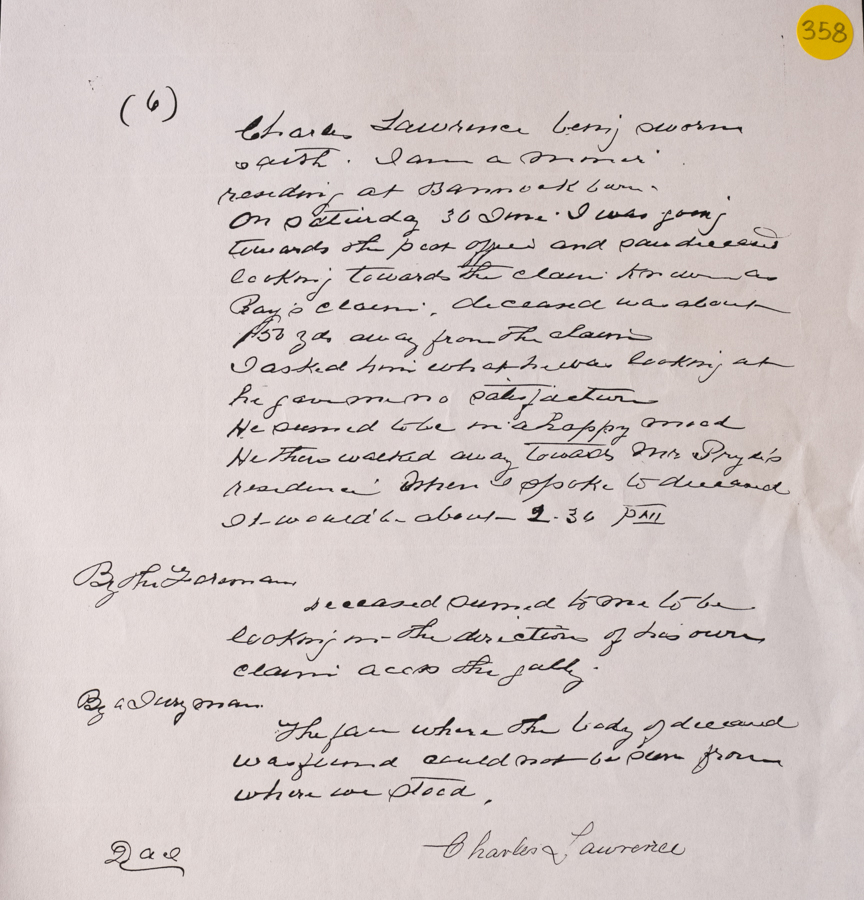 358
(6)
Charles Lawrence being sworn
saith. I am a miner
residing at Bannockburn.
On Saturday 30 June. I was going
towards the post office and saw deceased
looking towards the claim known as
Bay's claim, deceased was about
150 yds away from the claim
I asked him what he was looking at
he gave me no satisfaction
He seemed to be in a happy mood
He then walked away towards Mr Pryde's
residence When I spoke to deceased
It would be about 2.30 PM
By the Foreman
deceased seemed to me to be
looking in the direction of his own
claim across the gully.
By a Juryman
The face where the body of deceased
was found could not be seen from
where we stood.
Charles Lawrence